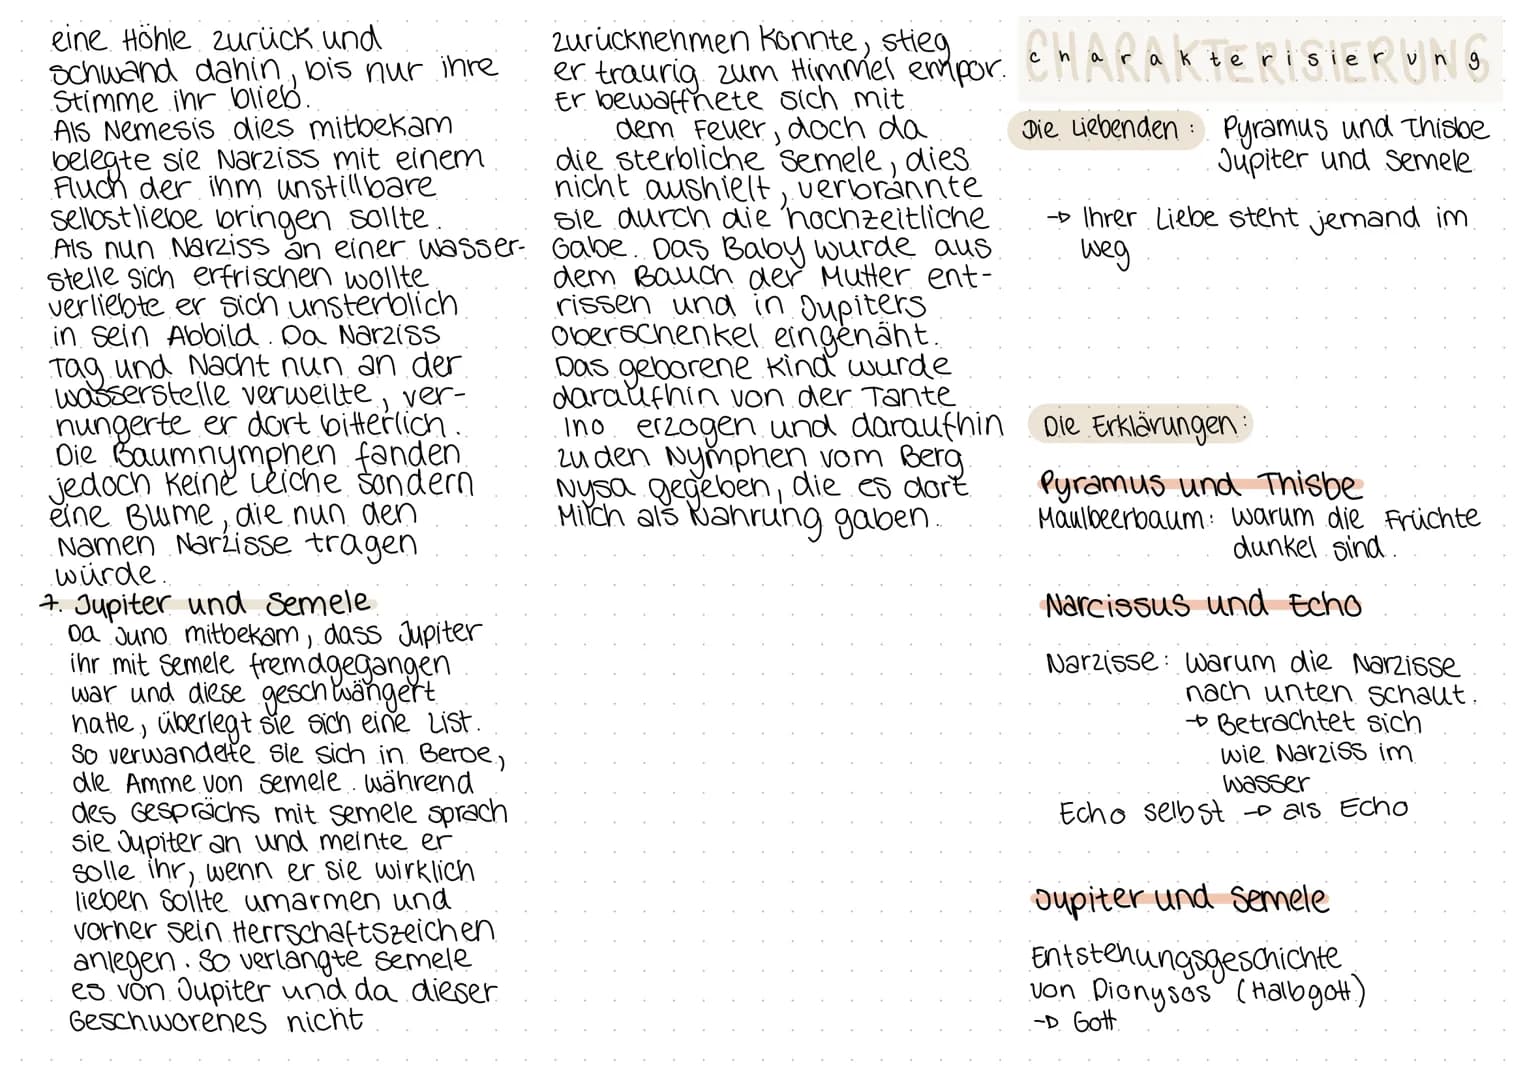 eine Höhle zurück und
schwand dahin, bis nur ihre
Stimme ihr blieb.
Als Nemesis dies mitbekam
belegte sie Narziss mit einem
Fluch der ihm unstillbare
selbstliebe bringen sollte.
Als nun Narziss an einer Wasser-
stelle sich erfrischen wollte
verliebte er sich unsterblich
in sein Abbild. Da Narziss
Tag und Nacht nun an der
wasserstelle verweilte, ver-
hungerte er dort bitterlich.
Die Baumnymphen fanden
jedoch keine Leiche sondern
eine Blume, die nun den
Namen Narzisse tragen
würde.
7. Jupiter und Semele
Da Juno mitbekam, dass Jupiter
ihr mit Semele fremdgegangen
war und diese geschwängert
hatte, überlegt sie sich eine List.
So verwandelte sie sich in Beroe,
die Amme von Semele. während
des Gesprächs mit Semele sprach
sie Jupiter an und meinte er
solle ihr, wenn er sie wirklich
lieben sollte umarmen und
vorher sein Herrschaftszeichen
anlegen. So verlangte Semele
es von Jupiter und da dieser
Geschworenes nicht
zurücknehmen konnte, stieg
er traurig zum Himmel empor.
Er bewaffnete sich mit
dem Feuer, doch da
die sterbliche Semele, dies
nicht aushielt, verbrannte
sie durch die hochzeitliche
Gabe. Das Baby wurde aus
dem Bauch der Mutter ent-
rissen und in Jupiters
Oberschenkel eingenäht.
Das geborene Kind wurde
daraufhin von der Tante
Ino erzogen und daraufhin
zu den Nymphen vom Berg
Nysa gegeben, die es dort
Milch als Nahrung gaben.
CHARAKTERISIERUNG
charakterisierung
Die Liebenden: Pyramus und Thisbe
Jupiter und Semele
→ Ihrer Liebe steht jemand im
Weg
Die Erklärungen:
Pyramus und Thisbe
Maulbeerbaum: Warum die Früchte
dunkel sind.
Narcissus und Echo
Narzisse: Warum die Narzisse
nach unten schaut.
→ Betrachtet sich
wie Narziss im
Wasser
Echo selbst → als Echo
Jupiter und Semele
Entstehungsgeschichte
von Dionysos (Halbgott)
→ Gott